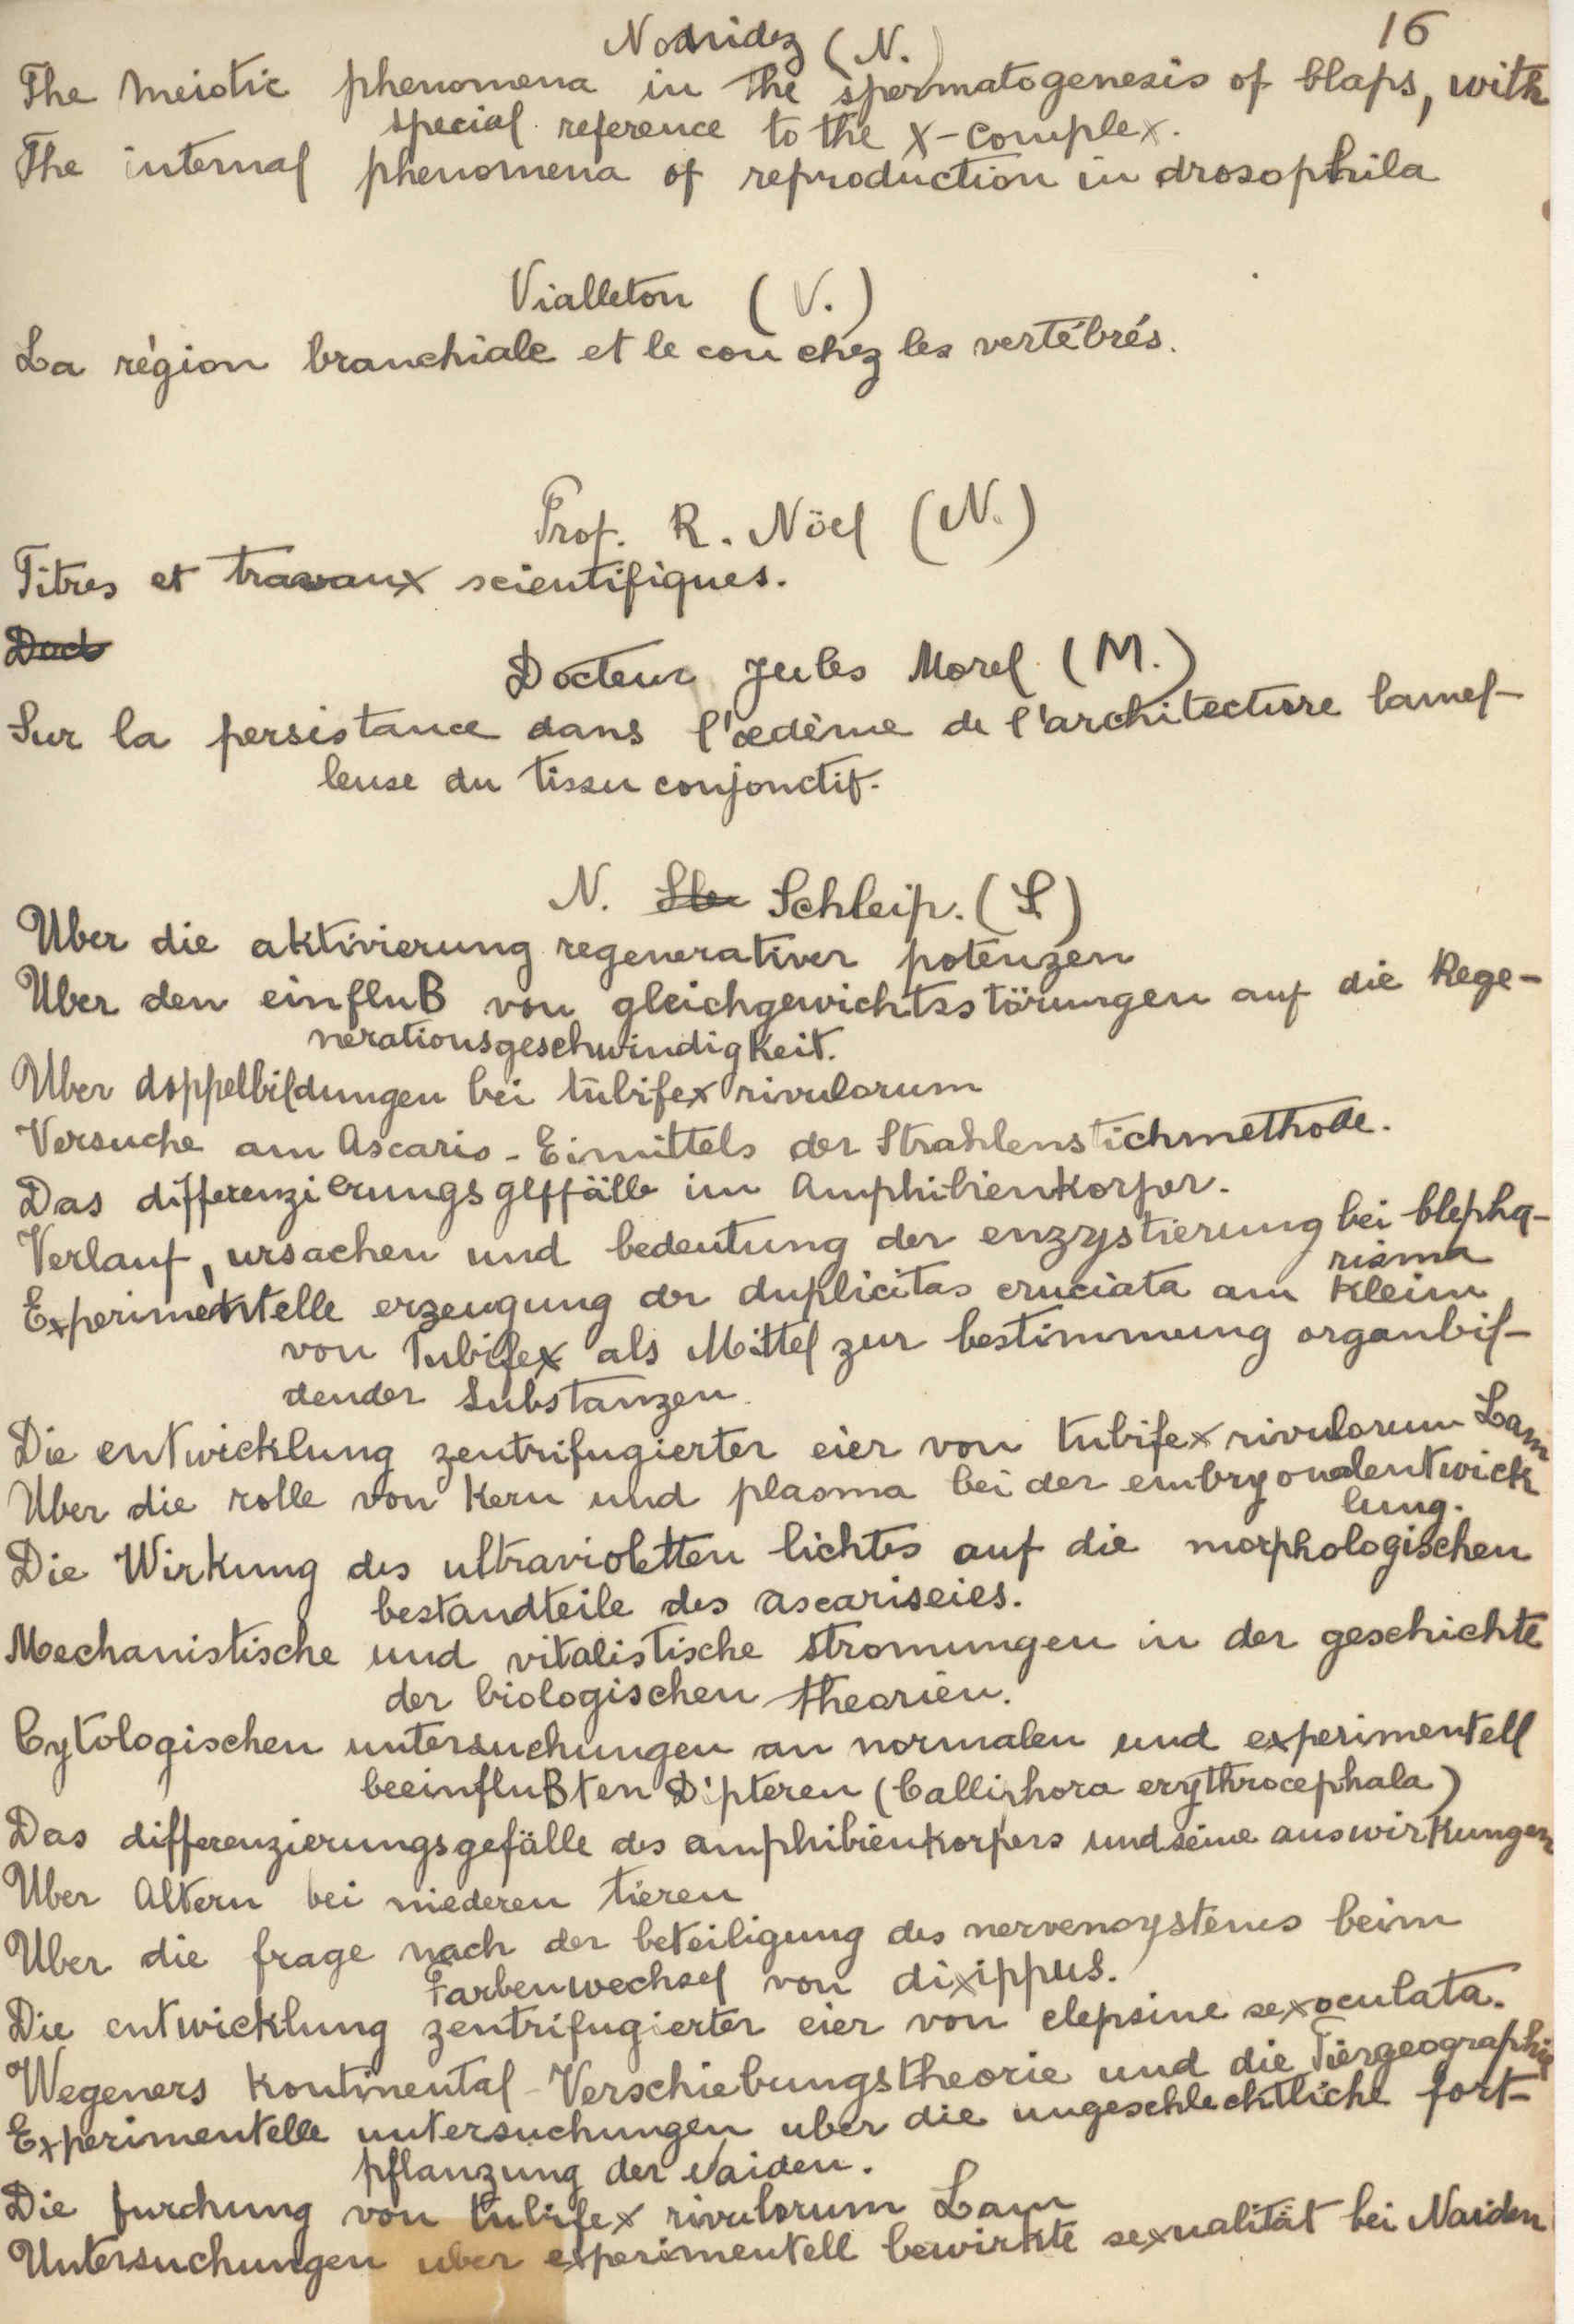 16
Nonidez (N.)
The meiotic phenomena in the spermatogenesis of blaps, with
special reference to the X-complex.
The internal phenomena of reproduction in drosophila
Vialleton (V.)
La région branchiale et le cou chez les vertébrés.
Prof. R. Nöel (N.)
Titres et travaux scientifiques.
Doct
Docteur Jules Morel (M.)
Sur la persistance dans l'œdème de l'architecture lamel-
leuse du tissu conjonctif.
N. Schleip. (S)
Uber die aktivierung regenerativer potenzen
Uber den einfluB von gleichgewichtsstörungen auf die Rege-
nerationsgeschwindigkeit.
Uber doppelbildungen bei tubifex rivulorum
Versuche am Ascaris-Eimittels der Strahlenstichmethode.
Das differenzierungsgeffälle im Amphibienkorper.
Verlauf, ursachen und bedeutung der enzystierung bei blepha-
risma
Experimentelle erzeugung der duplicitas cruciata am Kleim
von Tubifex als Mittel zur bestimmung organbil-
dender Substanzen
Die entwicklung zentrifugierter eier von tubifex rivulorum Lam
Uber die rolle von Kern und plasma bei der embryonalentwick
lung.
Die Wirkung des ultravioletten lichtes auf die morphologischen
bestandteile des ascariseies.
Mechanistische und vitalistische stromungen in der geschichte
der biologischen theorien.
Cytologischen untersuchungen an normalen und experimentell
beeinfluBten Dipteren (Calliphora erythrocephala)
Das differenzierungsgefälle des amphibienkorpers und seine auswirkungen
Uber Altern bei niederen tieren
Uber die frage nach der beteiligung des nervensystems beim
Farbenwechsel von dixippus.
Die entwicklung zentrifugierter eier von clepsine sexoculata.
Wegeners Kontinental-Verschiebungstheorie und die Tiergeographie
Experimentelle untersuchungen uber die ungeschlechtliche fort-
pflanzung der Naiden.
Die furchung von tubifex rivulorum Lam
Untersuchungen uber experimentell bewirkte sexualität bei Naiden